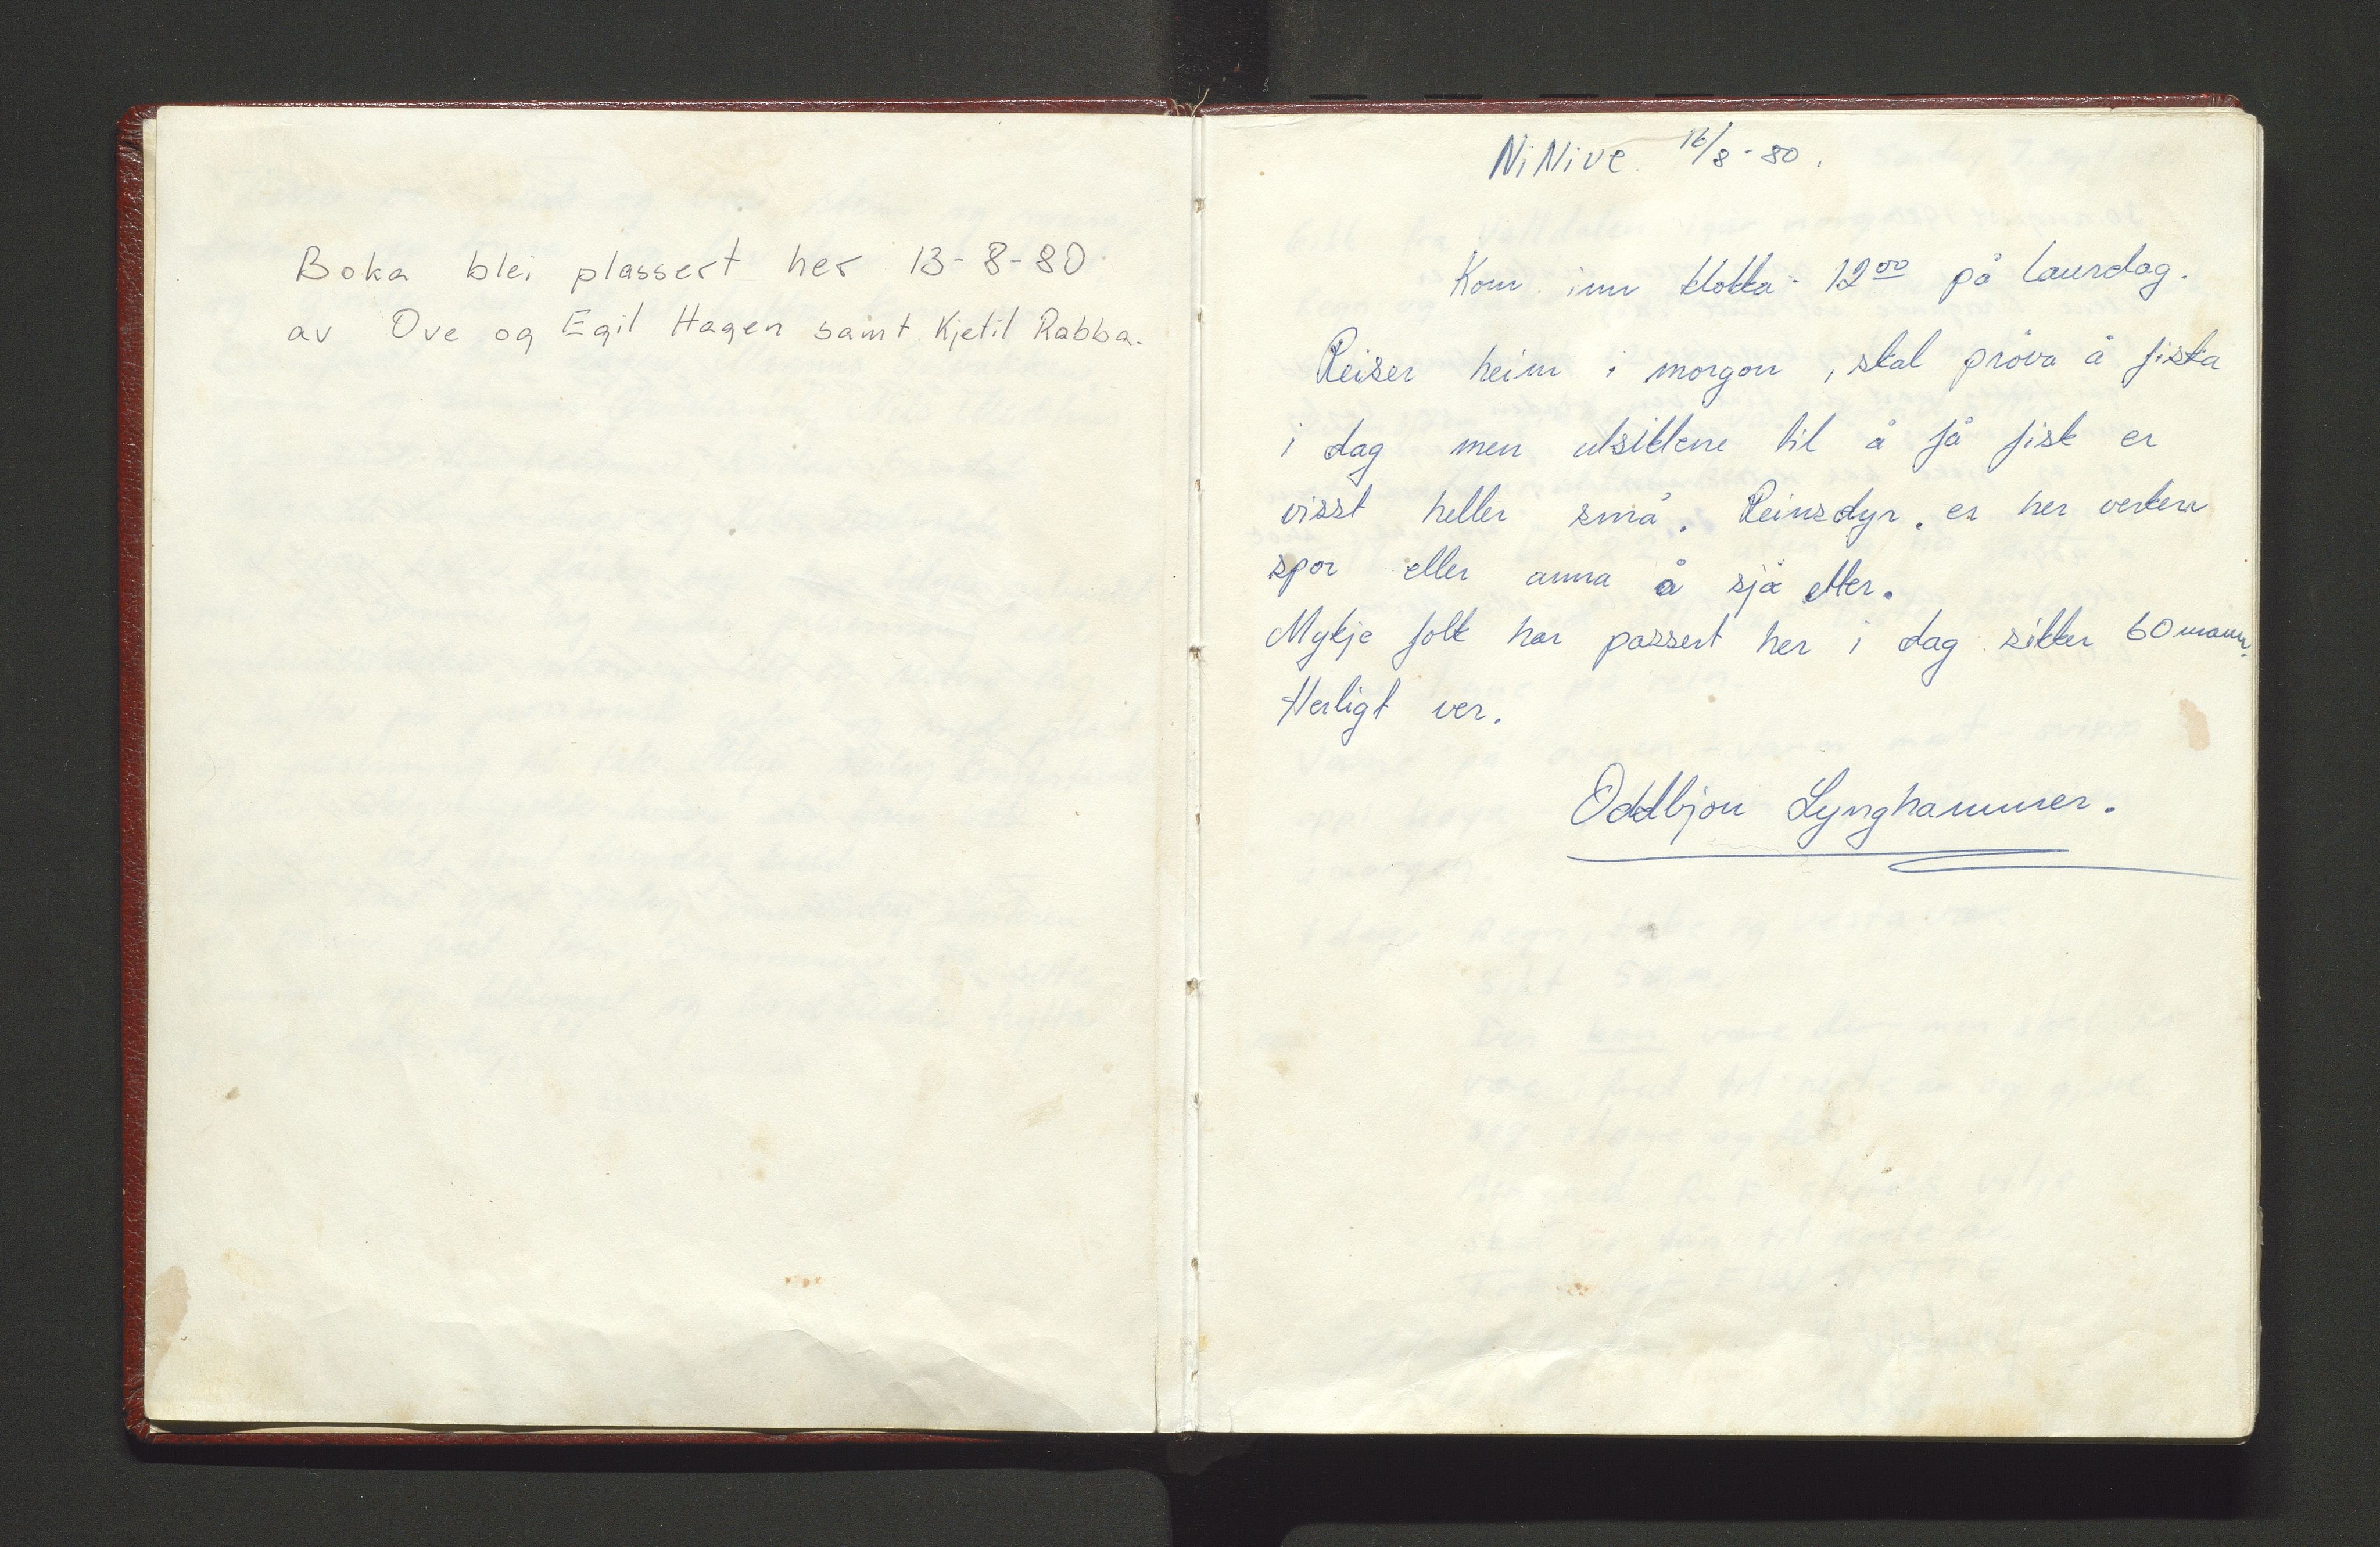 Boka blei plassert her 13-8-80
av Ove og Egil Hagen samt Kjetil Rabba.
NiNive. 16/8-80.
Kom inn klokka 12⁰⁰ på laurdag.
Reiser heim i morgon, skal prøva å fiska
i dag men utsiktene til å få fisk er
visst heller små. Reinsdyr. er her verken
spor eller anna å sjå etter.
Mykje folk har passert her i dag sikker 60 mann.
Herligt ver.
Oddbjørn Lynghammer.